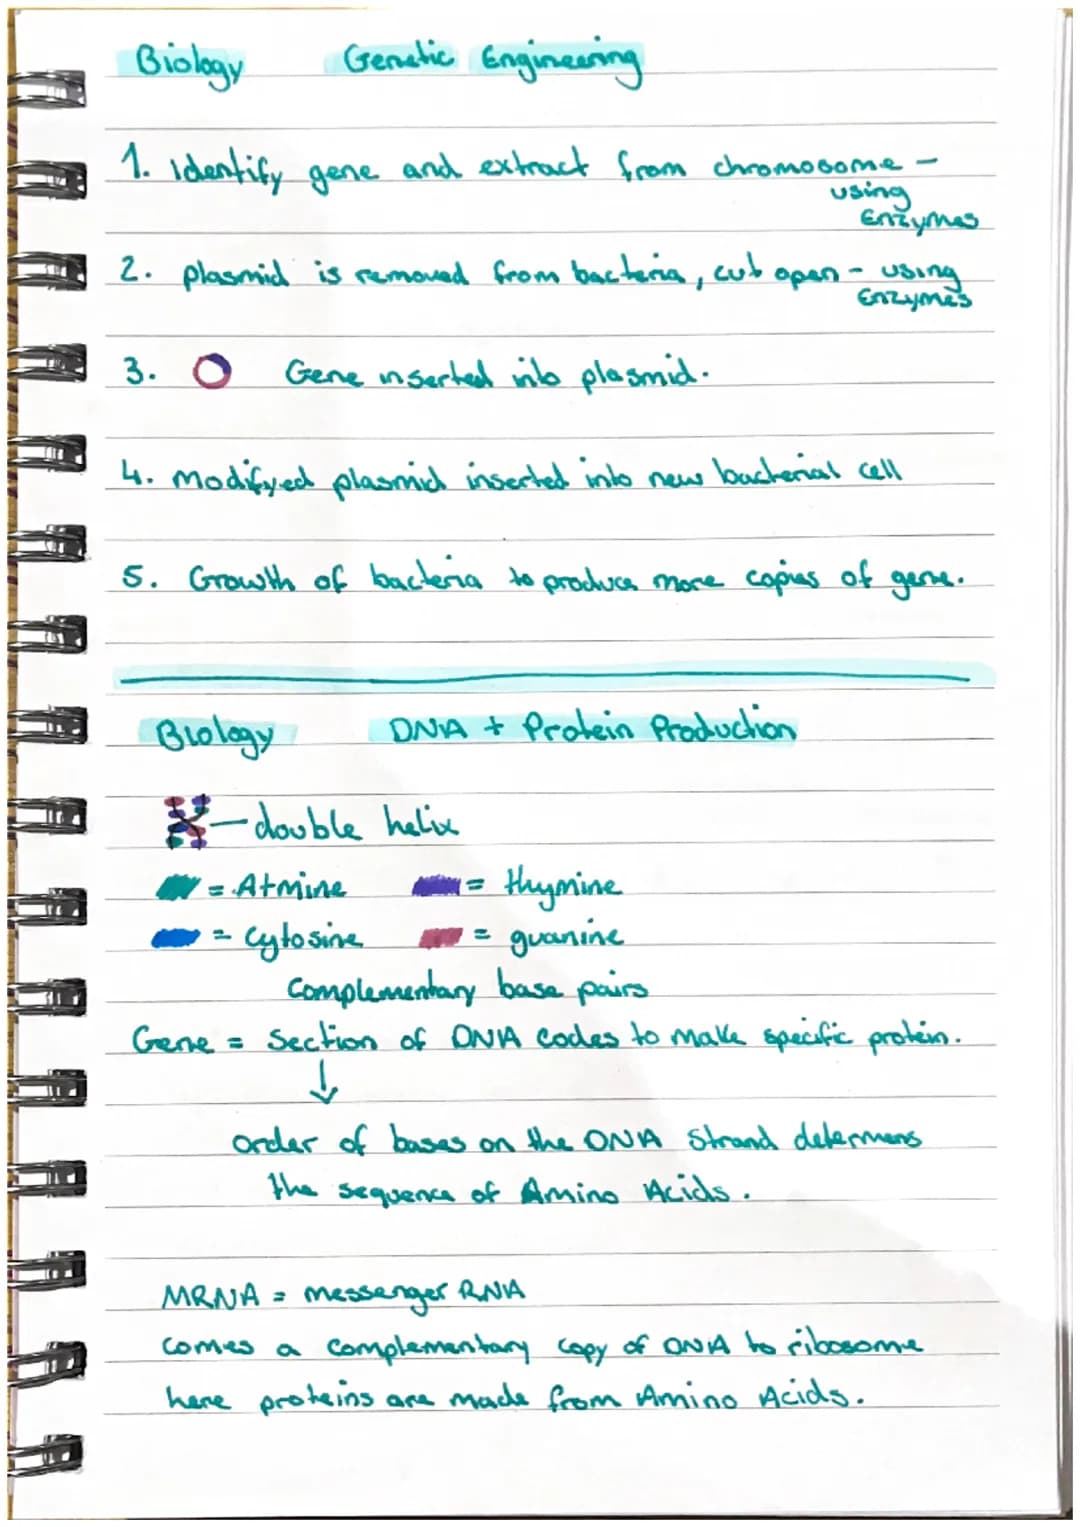 Biology Genetic Engineering
1. Identify gene and extract from chromosome -
using
Enzymes
2. plasmid is removed from bacteria, cut open - using
Enzymes
3. Gene inserted into plasmid.
4. Modifyed plasmid inserted into new bacterial cell
5. Growth of bacteria to produce more copies of gene.
Biology DNA + Protein Production
- double helix
= Atmine = thymine
= cytosine = guanine
Complementary base pairs
Gene = Section of DNA codes to make specific protein.
↓
order of bases on the DNA strand determens
the sequence of Amino Acids.
MRNA = messenger RNA
comes a complementary copy of DNA to ribosome
here proteins are made from Amino Acids.